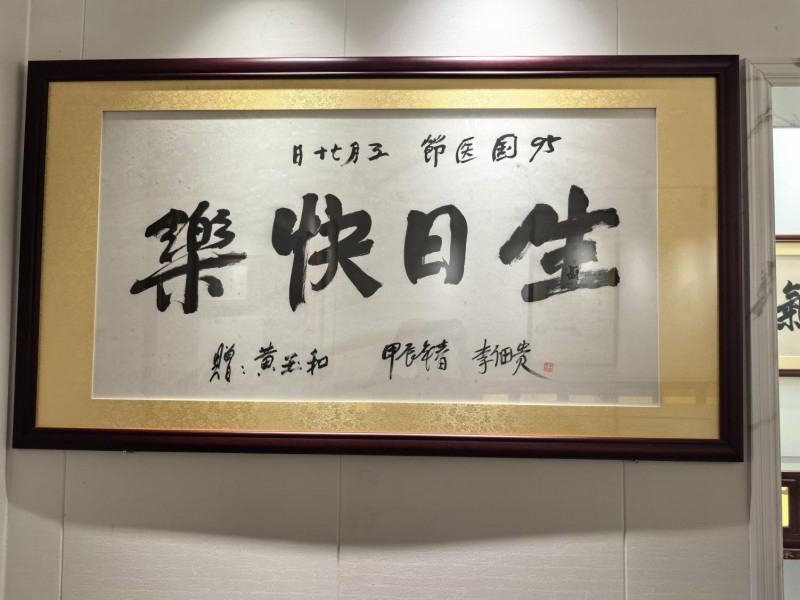 95 国医節 三月十七日
生日快樂
贈：黄 和 甲辰年春 李佃贵